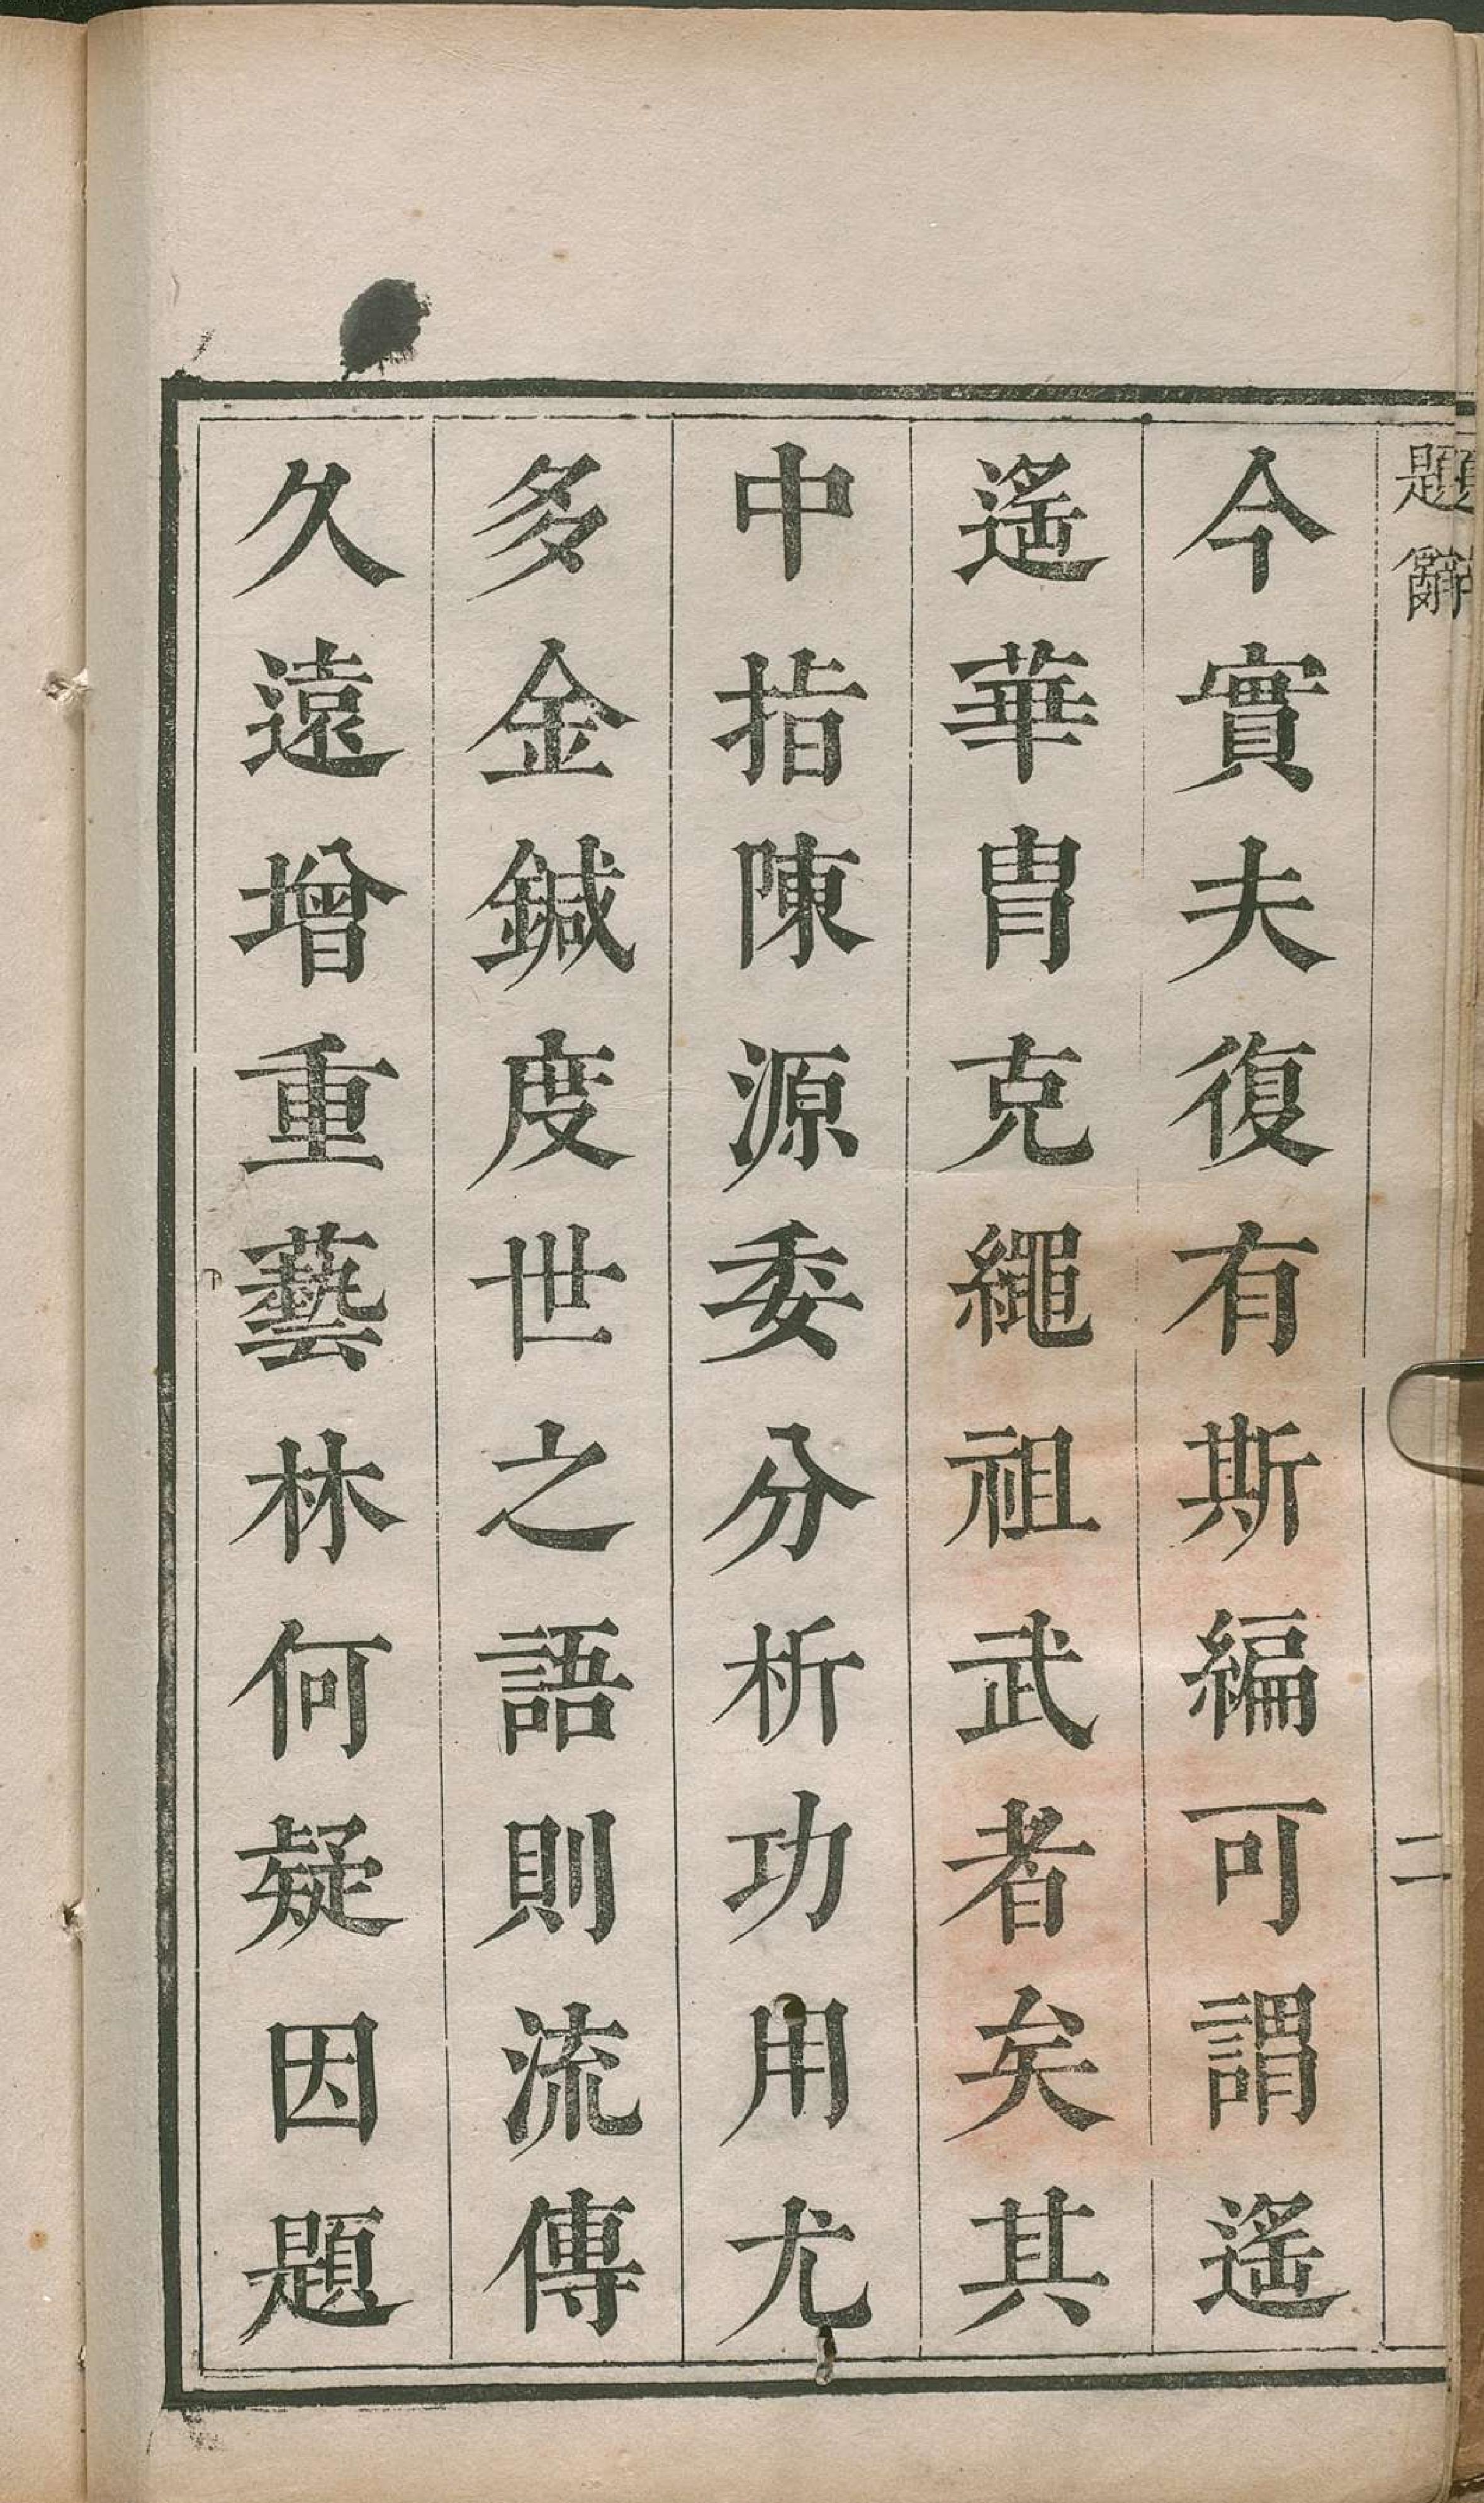 題辭
二
今實夫復有斯編可謂遙
遙華胄克繩祖武者矣其
中指陳源委分析功用尤
多金鍼度世之語則流傳
久遠增重藝林何疑因題